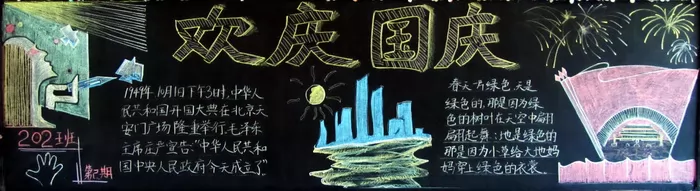 欢庆国庆
1949年10月1日下午3时,中华人
民共和国开国大典在北京天
安门广场隆重举行毛泽东
主席庄严宣告:"中华人民共和
国中央人民政府今天成立了"
春天是绿色,天是
绿色的,那是因为绿
色的树叶在天空中翩
翩起舞;地是绿色的
那是因为小草给大地妈
妈穿上绿色的衣裳。
202班
第 期